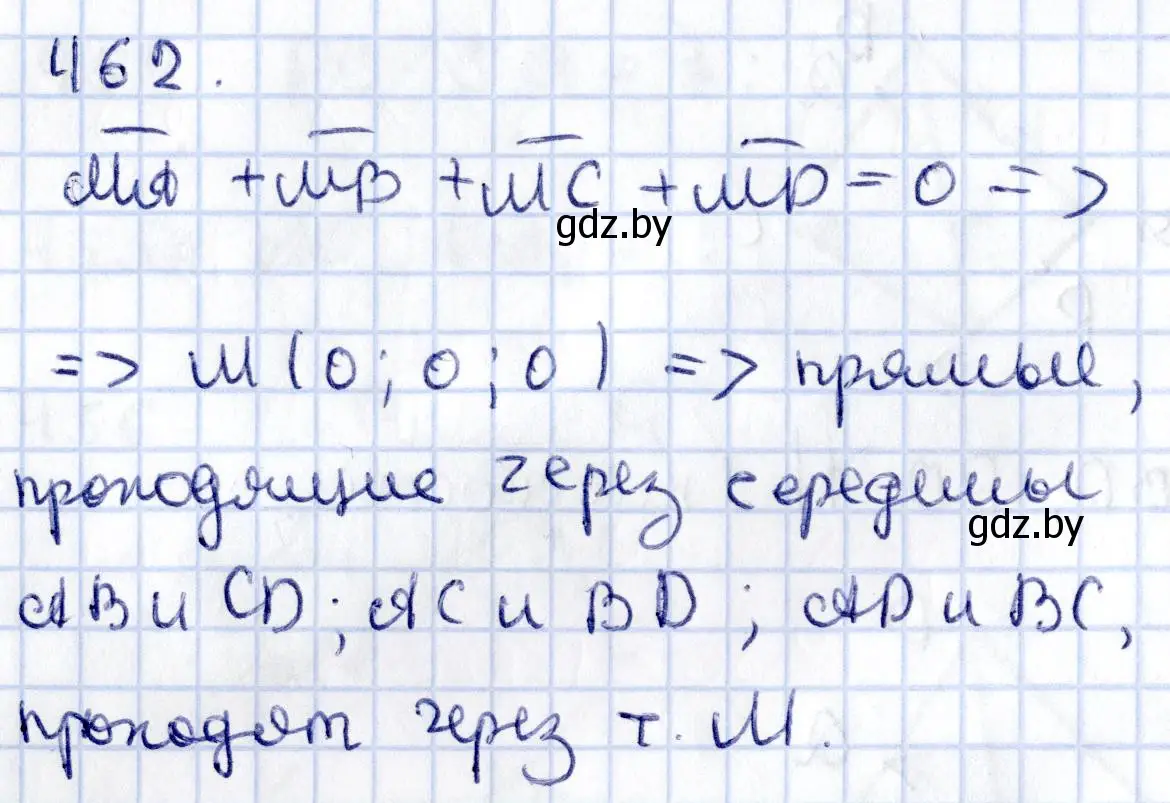 462.
MA + MB + MC + MD = 0 =>
gdz.by
=> M (0; 0; 0) => прямые,
проходящие через середины
gdz.by
AB и CD; AC и BD; AD и BC,
проходят через т. M.